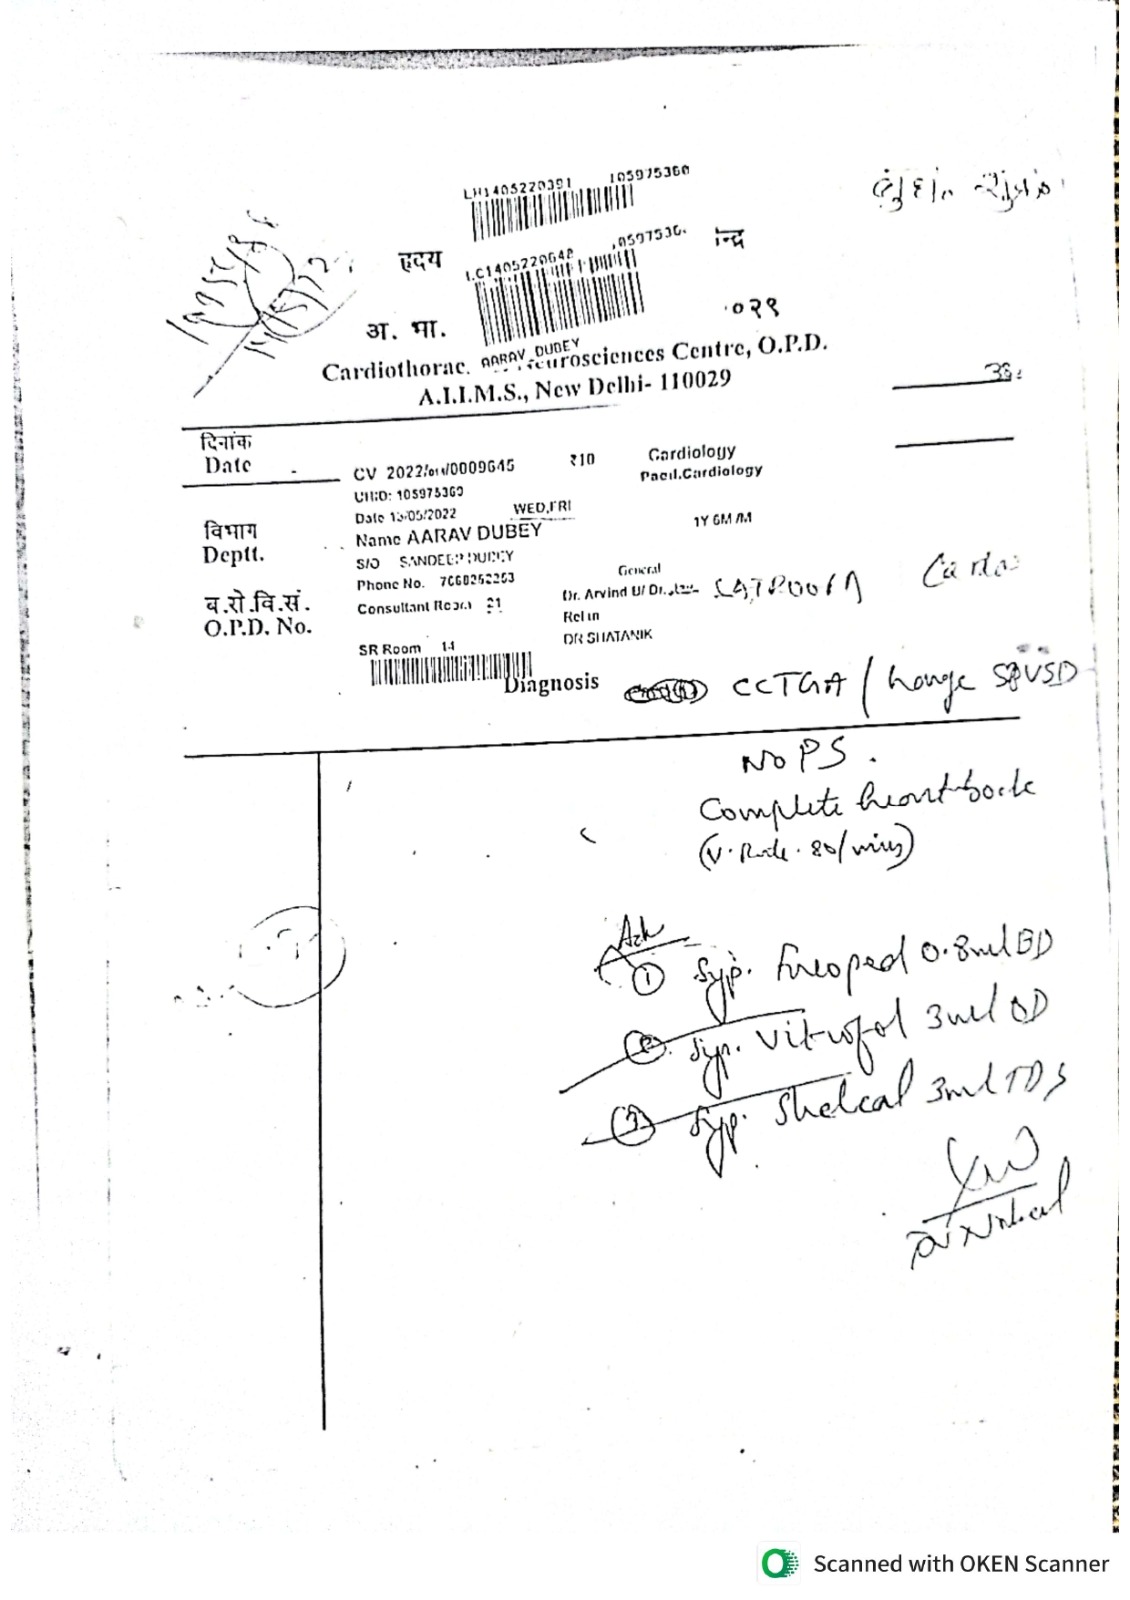 LH1405220391 105975360
हृदय
न्द्र
LC1405220642
अ. भा.
०२९
AARAV DUBEY
Cardiothorac. Neurosciences Centre, O.P.D.
A.I.I.M.S., New Delhi- 110029
दिनांक
Date
CV 2022/014/0009645 ₹10 Cardiology
Paed.Cardiology
UHID: 105975360
Date 13/05/2022 WED,FRI
विभाग
Deptt.
Name AARAV DUBEY 1Y 6M /M
S/O SANDEEP DUBEY
Phone No. 7668252253 General
Consultant Room 21 Dr. Arvind B/ Dr.
Rel in
ब.रो.वि.सं.
O.P.D. No.
SR Room 14 DR SHATANIK
Diagnosis CCTGA / large SPVSD
No PS.
Complete heart bock
(V. Rate. 80/mins)
Adv
① Syp. Fureoped 0.8ml BD
② Syp. Vitcofol 3ml OD
③ Syp. Shelcal 3ml TDS
Scanned with OKEN Scanner